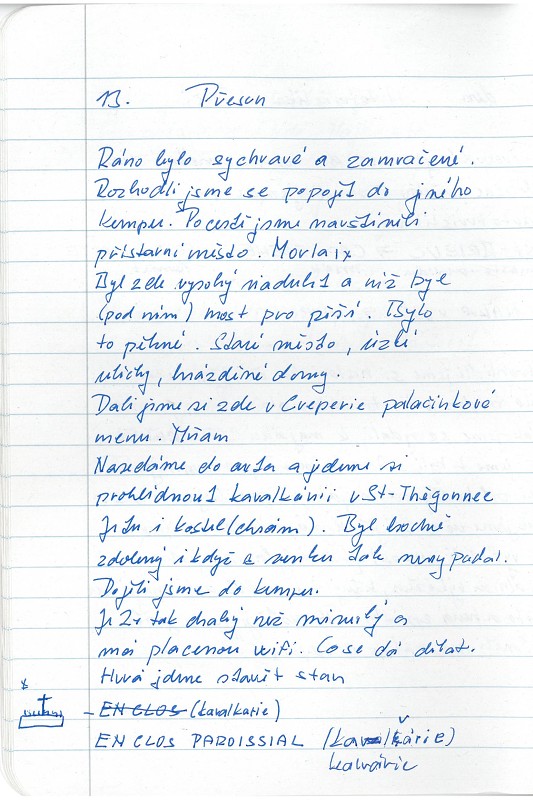 13. Přesun
Ráno bylo sychravé a zamračené.
Rozhodli jsme se popojít do jiného
kempu. Po cestě jsme navštívili
přístavní město. Morlaix
Byl zde vysoký viadukt a níž byl
(pod ním) most pro pěší. Bylo
to pěkné. Staré město, úzké
uličky, hrázděné domy.
Dali jsme si zde v Creperie palačinkové
menu. Mňam
Nasedáme do auta a jdeme si
prohlédnout kavalkárii v St-Thégonnec
Je tu i kostel (chrám). Byl hodně
zdobený i když z venku tak nevypadal.
Dojeli jsme do kempu.
Je 2x tak drahý než minulý a
má placenou wifi. Co se dá dělat.
Hurá jdeme stavit stan
- ENCLOS (kavalkarie)
ENCLOS PAROISSIAL
kalvárie